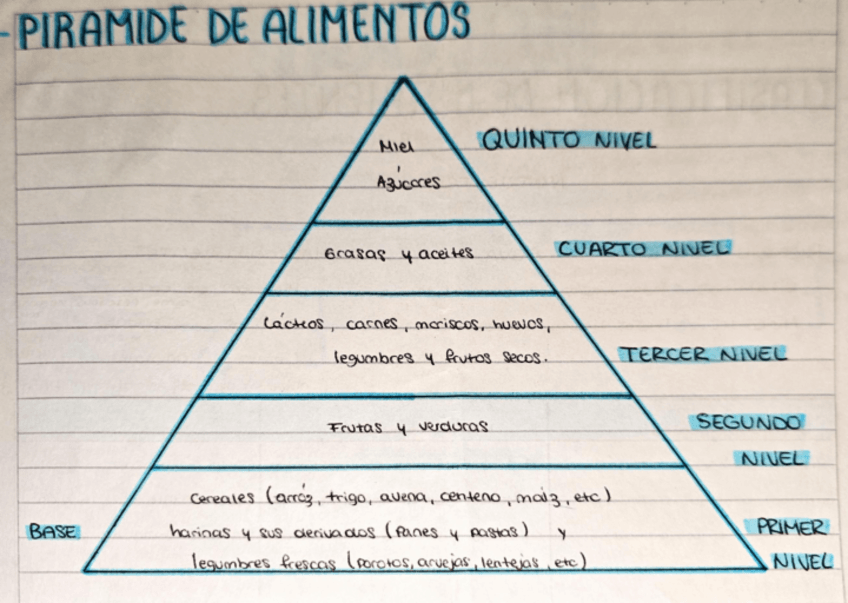 - PIRAMIDE DE ALIMENTOS
Miel
QUINTO NIVEL
Azúcares
Grasas y aceites
CUARTO NIVEL
Lácteos, carnes, mariscos, huevos,
legumbres y frutos secos.
TERCER NIVEL
Frutas y verduras
SEGUNDO
NIVEL
Cereales (arróz, trigo, avena, centeno, maíz, etc)
BASE
harinas y sus derivados (Panes y pastas) y
PRIMER
legumbres frescas (porotos, arvejas, lentejas, etc)
NIVEL